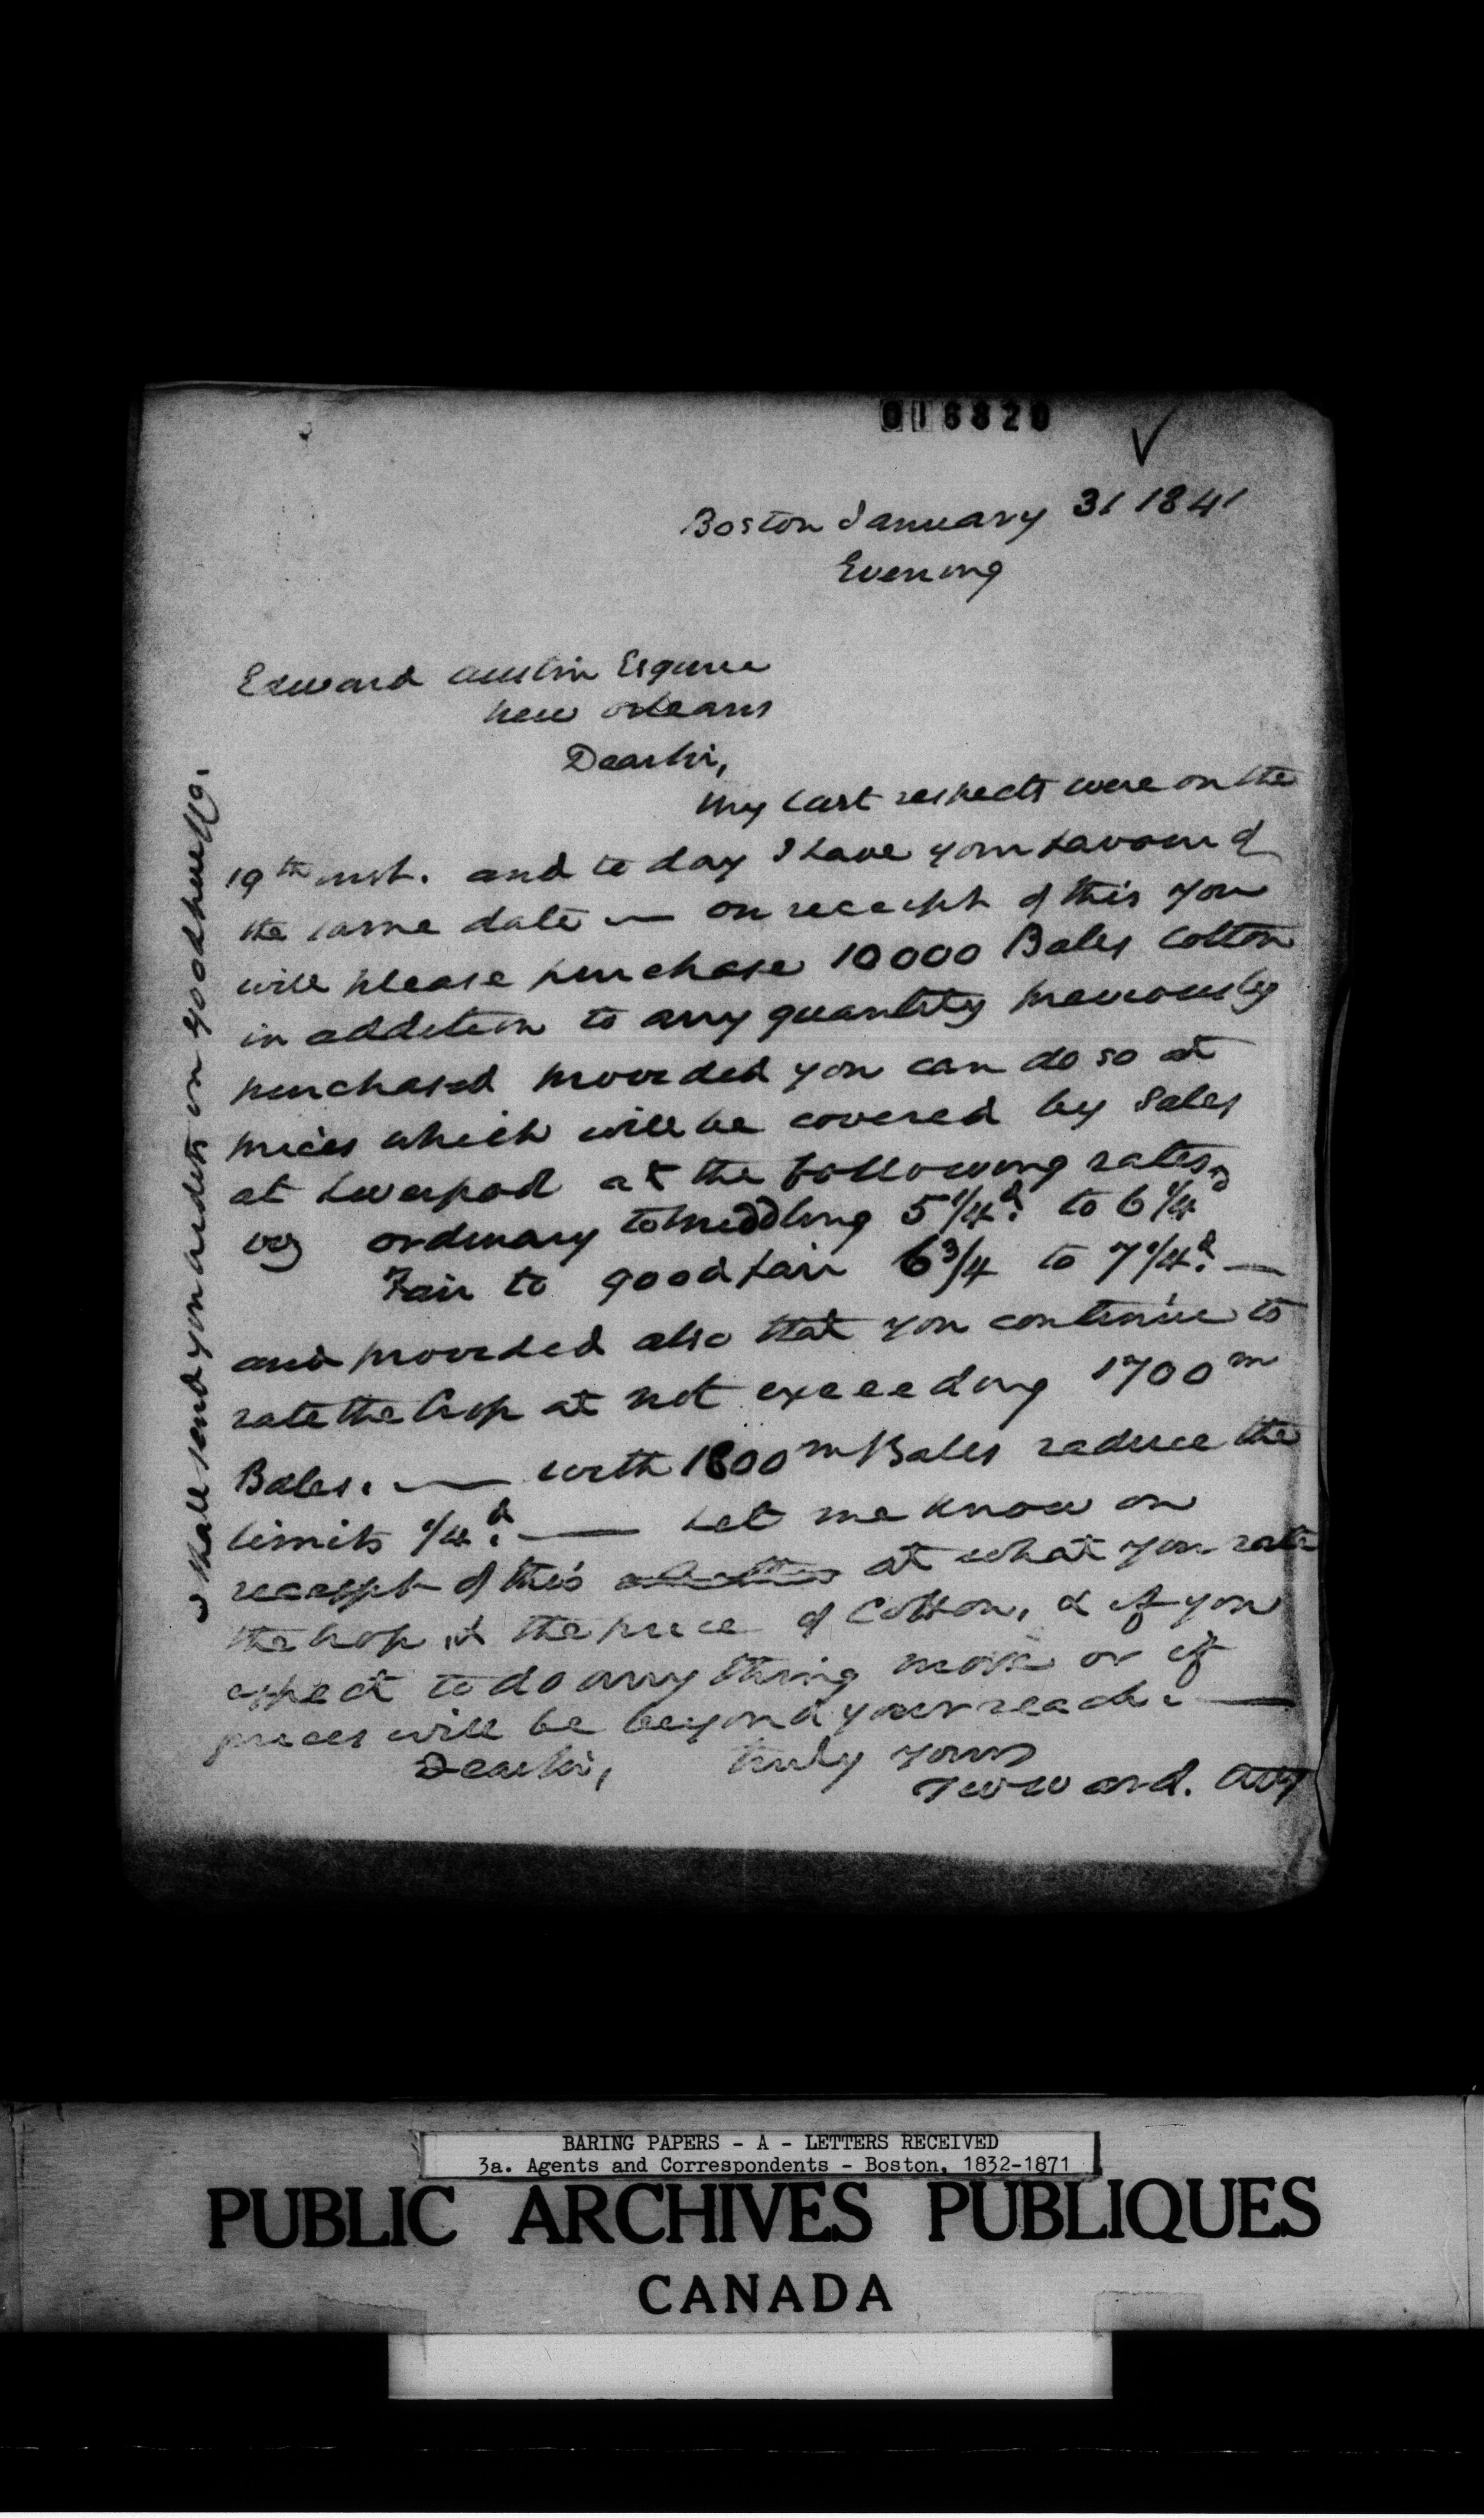 016820
Boston January 31 1841
Evening
Edward Austin Esquire
New Orleans
Dear Sir,
My last respects were on the
19th inst. and to day I have your favour of
the same date — on receipt of this you
will please purchase 10000 Bales Cotton
in addition to any quantity previously
purchased provided you can do so at
prices which will be covered by Sales
at Liverpool at the following rates,
viz ordinary to middling 5 1/4d. to 6 1/4d
Fair to good fair 6 3/4 to 7 1/4d. —
and provided also that you continue to
rate the Crop at not exceeding 1700m
Bales. — with 1800m Bales reduce the
limits 1/4d. — Let me know on
receipt of this at what you rate
the Crop, & the price of Cotton, & if you
expect to do any thing more or if
prices will be beyond your reach. —
Dear Sir, truly yours
T W Ward. Agt
I shall send you credits on Goodhue & Co.
BARING PAPERS - A - LETTERS RECEIVED
3a. Agents and Correspondents - Boston, 1832-1871
PUBLIC ARCHIVES PUBLIQUES
CANADA